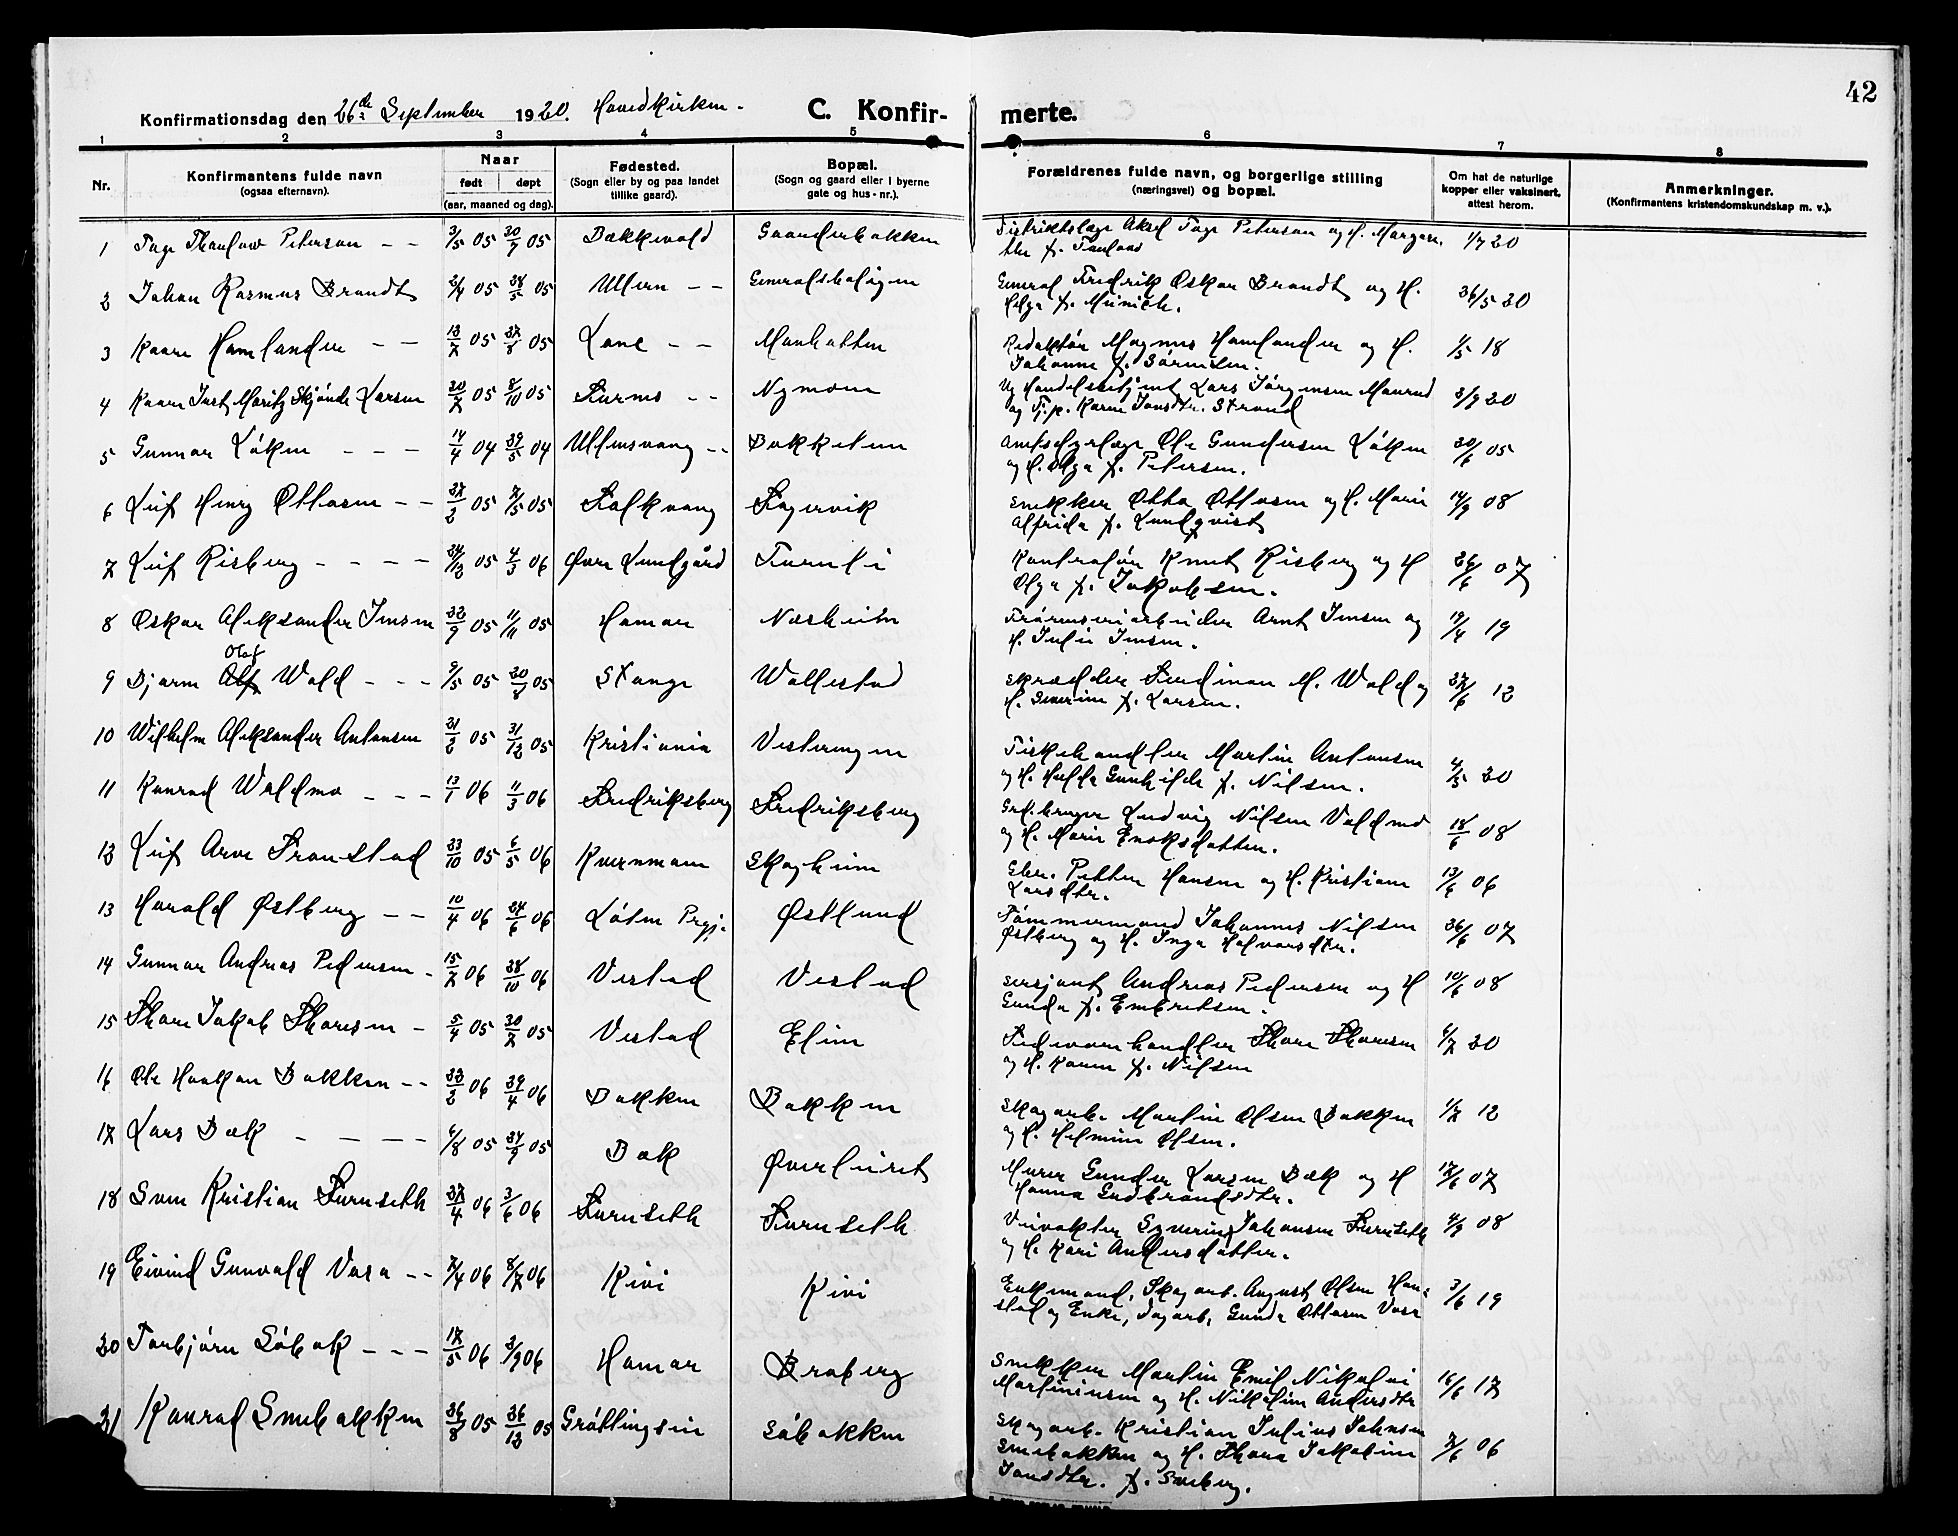 42
Konfirmationsdag den 26de September 1920. Hovedkirken.
C. Konfirmerte.
1 2 3 4 5 6 7 8
Nr.
Konfirmantens fulde navn
(ogsaa efternavn).
Naar
født døpt
(aar, maaned og dag).
Fødested.
(Sogn eller by og paa landet
tillike gaard).
Bopæl.
(Sogn og gaard eller i byerne
gate og hus-nr.).
Forældrenes fulde navn, og borgerlige stilling
(næringsvei) og bopæl.
Om hat de naturlige
kopper eller vaksinert,
attest herom.
Anmerkninger.
(Konfirmantens kristendomskundskap m. v.).
1 Tage Thaulow Petersen - - 3/5 05 30/7 05 Bækkevold Distriktslæge Aksel Tage Petersen og H. Margre-
the f. Taulow 1/7 20
2 Johan Rasmus Brandt 2/4 05 28/5 05 Ullern - - Generalsboligen General Fredrik Oskar Brandt og H.
Helga f. Münich. 26/5 20
3 Kaare Hamlander - - 13/7 05 27/8 05 Lone - - Manhatten Redaktør Magnus Hamlander og H.
Johanne f. Sørensen. 1/5 18
4 Kaare Just Moritz Skjønde Larsen 20/7 05 8/10 05 Furnes - - Nymoen Ug. Handelsbetjent Lars Jørgensen Maurud
og Fr.p. Karen Jonsdtr. Strand 3/9 20
5 Gunnar Løken - - - 14/4 04 29/5 04 Ullensvang - - Bakketun Amtsdyrlæge Ole Gundersen Løken
og H. Olga f. Petersen. 30/6 05
6 Leif Henry Ottosen - - 27/2 05 7/5 05 Solkvang Fagervik Snekker Otto Ottosen og H. Marie
Alfrida f. Lundqvist 14/9 08
7 Leif Risberg - - - - 24/12 05 4/3 06 Øvre Lundgård Furuli Kontrolør Knut Risberg og H
Olga f. Jakobsen. 26/6 07
8 Oskar Aleksander Jensen 22/9 05 11/11 05 Hamar Næsheim Arnt Jensen og
H. Julie Jensen. 19/4 19
9 Bjarne Olaf Wold - - - 9/5 05 20/8 05 Stange Wollestad Skrædder Ferdinan M. Wold og
H. Severine f. Larsen. 27/6 12
10 Wilhelm Aleksander Antonsen 21/2 05 31/12 05 Kristiania Vesterengen Fiskehandler Martin Antonsen
og H. Hulda Gunhilde f. Nilsen. 4/5 20
11 Konrad Woldmo - - - 13/1 06 11/3 06 Fredriksberg Fredriksberg Grd.bruger Ludvig Nilsen Voldmo
og H. Marie Enoksdatter. 18/6 08
12 Leif Arve Fronstad 23/10 05 6/5 06 Kvernmoen Skogheim Eier. Petter Hansen og H. Kristiane
Larsdtr. 13/6 06
13 Harald Østberg - - 10/4 06 24/6 06 Løten Prgj. Østlund Tømmermand Johannes Nilsen
Østberg og H. Inga Halvorsdtr. 26/6 07
14 Gunnar Andreas Pedersen - 15/7 06 28/10 06 Vestad Vestad Sersjant Andreas Pedersen og H
Gunda f. Embretsen. 10/6 08
15 Thore Jakob Thoresen - 5/4 05 30/7 05 Vestad Elim Fedevarehandler Thore Thoresen
og H. Karen f. Nilsen 6/7 20
16 Ole Haakon Bakken - - 22/2 06 29/4 06 Bakken Bakken Skogarb. Martin Olsen Bakken
og H. Helmine Olsen. 1/7 12
17 Lars Bæk - - - - 6/8 05 24/9 05 Bæk Øverlieret Murer Gunder Larsen Bæk og H
Hanna Gudbrandsdtr. 17/6 07
18 Sven Kristian Furuseth 27/4 06 3/6 06 Furuseth Furuseth Veivokter Syvering Johansen Furuseth
og H. Kari Andersdatter. 4/9 08
19 Eivind Gunvald Vasa - - 7/4 06 8/7 06 Kivi Kivi Enkemand, Skogarb. August Olsen Hau-
stad og Enke, dagarb, Gunda Ottosen Vasa 3/6 19
20 Torbjørn Søbak - - - 17/5 06 2/9 06 Hamar Braberg Snekker Martin Emil Nikolai
Martiniusen og H. Nikoline Andersdtr 16/6 17
21 Konrad Smebakken 26/8 05 26/12 05 Grøtlingsæie Søbakken Skogarb. Kristian Julius Johnsen
Smebakken og H. Thora Jakobine
Jonsdtr. f. Smeberg. 2/6 06